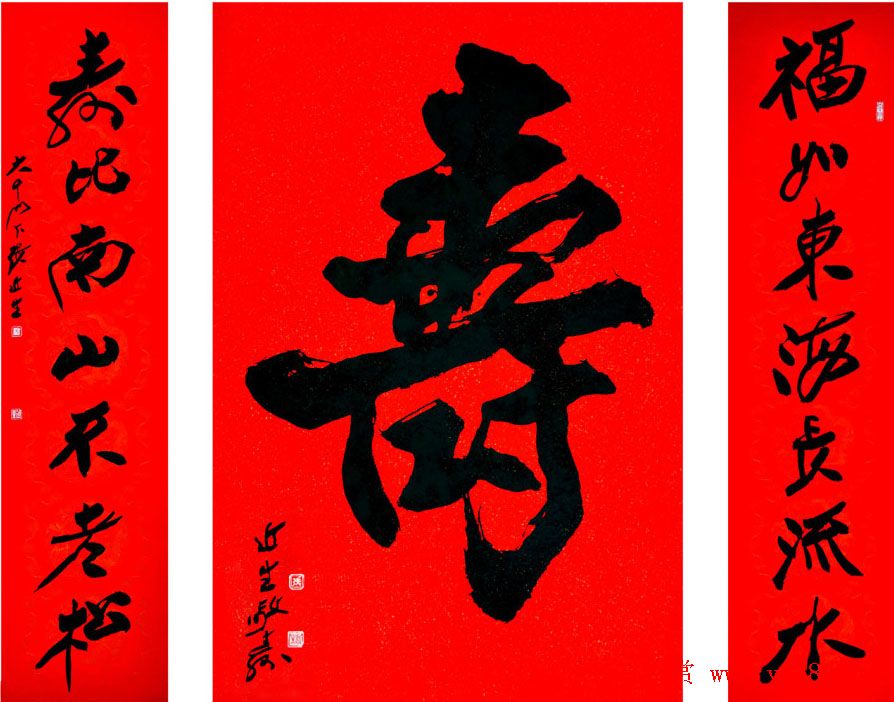 福如東海長流水
壽
近生敬書
壽比南山不老松
大千門下張近生
赏 www
8